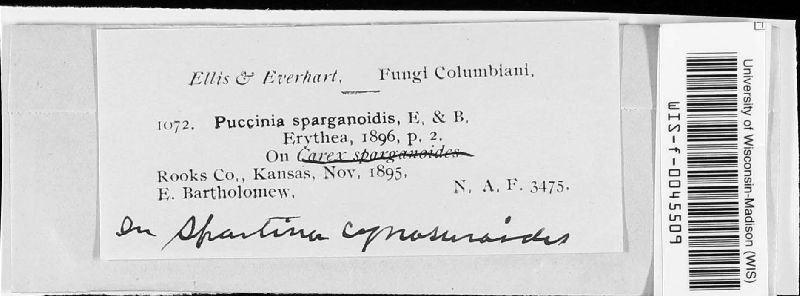 Ellis & Everhart, Fungi Columbiani.
1072. Puccinia sparganoidis, E. & B.
Erythea, 1896, p. 2.
On Carex sparganoides
Rooks Co., Kansas, Nov, 1895,
E. Bartholomew, N. A. F. 3475.
On Spartina cynosuroides
University of Wisconsin-Madison (WIS)
WIS-f-0045509